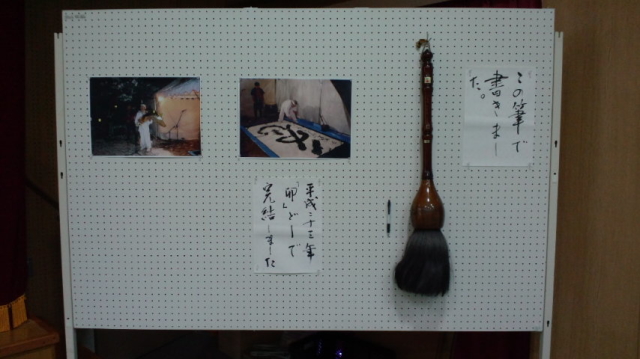 この筆で
書きまし
た。
平成二十三年
「卯」どしで
完結しました